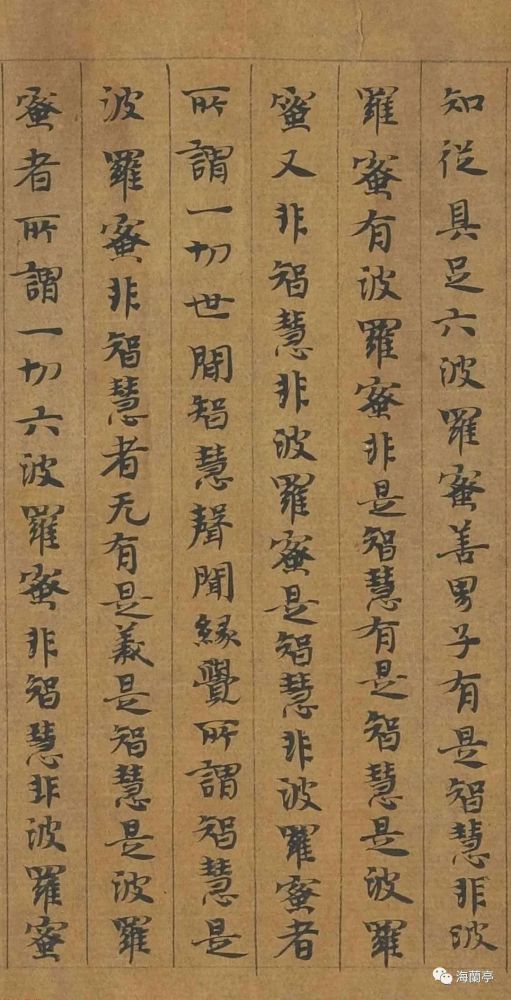 知從具足六波羅蜜善男子有是智慧非波
羅蜜有波羅蜜非是智慧有是智慧是波羅
蜜又非智慧非波羅蜜是智慧非波羅蜜者
所謂一切世間智慧聲聞緣覺所謂智慧是
波羅蜜非智慧者无有是義是智慧是波羅
蜜者所謂一切六波羅蜜非智慧非波羅蜜
海蘭亭